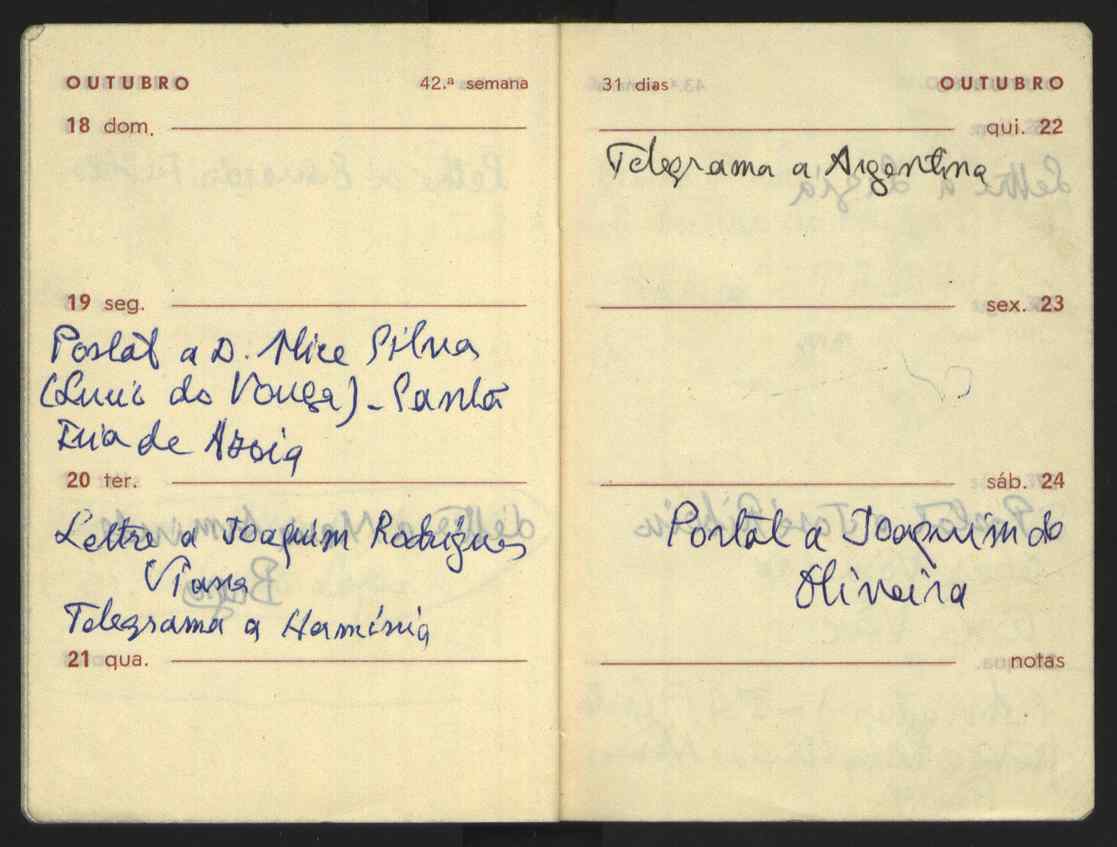 OUTUBRO 42.ª semana
18 dom.
19 seg.
Postal a D. Alice Silva
(Luci do Vouga) - Santa
Iria de Azoia
20 ter.
Lettre a Joaquim Rodrigues
Viana
Telegrama a Hermínia
21 qua.
31 dias OUTUBRO
qui. 22
Telegrama a Argentina
sex. 23
sáb. 24
Postal a Joaquim do
Oliveira
notas